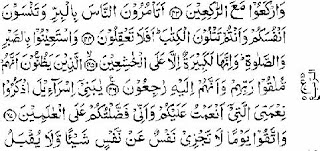 وَارْكَعُوْا مَعَ الرّٰكِعِيْنَ ﴿٤٣﴾ اَتَاْمُرُوْنَ النَّاسَ بِالْبِرِّ وَتَنْسَوْنَ
اَنْفُسَكُمْ وَاَنْتُمْ تَتْلُوْنَ الْكِتٰبَ اَفَلَا تَعْقِلُوْنَ ﴿٤٤﴾ وَاسْتَعِيْنُوْا بِالصَّبْرِ
وَالصَّلٰوةِ وَاِنَّهَا لَكَبِيْرَةٌ اِلَّا عَلَى الْخٰشِعِيْنَ ﴿٤٥﴾ الَّذِيْنَ يَظُنُّوْنَ اَنَّهُمْ
مُّلٰقُوْا رَبِّهِمْ وَاَنَّهُمْ اِلَيْهِ رٰجِعُوْنَ ﴿٤٦﴾ يٰبَنِيْٓ اِسْرَآءِيْلَ اذْكُرُوْا
نِعْمَتِيَ الَّتِيْٓ اَنْعَمْتُ عَلَيْكُمْ وَاَنِّيْ فَضَّلْتُكُمْ عَلَى الْعٰلَمِيْنَ ﴿٤٧﴾
وَاتَّقُوْا يَوْمًا لَّا تَجْزِيْ نَفْسٌ عَنْ نَّفْسٍ شَيْـًٔا وَّلَا يُقْبَلُ